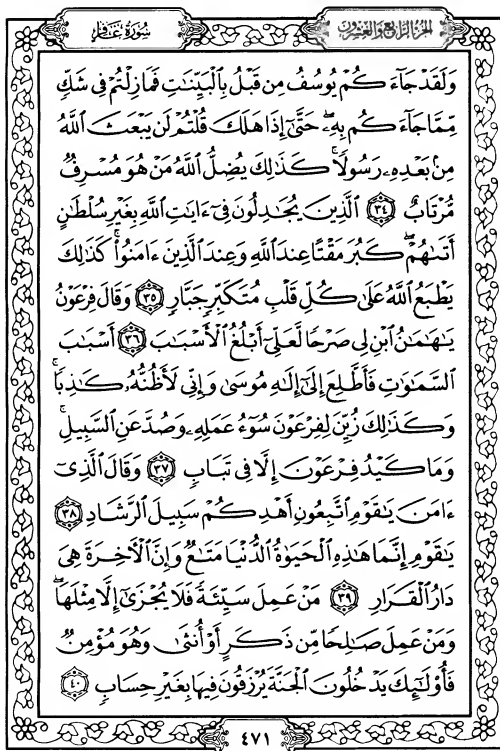 سُورَةُ غَافِرٍ
الجُزْءُ الرَّابِعُ وَالعِشْرُونَ
وَلَقَدْ جَآءَكُمْ يُوسُفُ مِن قَبْلُ بِالْبَيِّنَٰتِ فَمَازِلْتُمْ فِى شَكٍّ
مِّمَّا جَآءَكُم بِهِۦۖ حَتَّىٰٓ إِذَا هَلَكَ قُلْتُمْ لَن يَبْعَثَ ٱللَّهُ
مِنۢ بَعْدِهِۦ رَسُولًاۚ كَذَٰلِكَ يُضِلُّ ٱللَّهُ مَنْ هُوَ مُسْرِفٌ
مُّرْتَابٌ ٣٤ ٱلَّذِينَ يُجَٰدِلُونَ فِىٓ ءَايَٰتِ ٱللَّهِ بِغَيْرِ سُلْطَٰنٍ
أَتَىٰهُمْۖ كَبُرَ مَقْتًا عِندَ ٱللَّهِ وَعِندَ ٱلَّذِينَ ءَامَنُوا۟ۚ كَذَٰلِكَ
يَطْبَعُ ٱللَّهُ عَلَىٰ كُلِّ قَلْبِ مُتَكَبِّرٍ جَبَّارٍ ٣٥ وَقَالَ فِرْعَوْنُ
يَٰهَٰمَٰنُ ٱبْنِ لِى صَرْحًا لَّعَلِّىٓ أَبْلُغُ ٱلْأَسْبَٰبَ ٣٦ أَسْبَٰبَ
ٱلسَّمَٰوَٰتِ فَأَطَّلِعَ إِلَىٰٓ إِلَٰهِ مُوسَىٰ وَإِنِّى لَأَظُنُّهُۥ كَٰذِبًاۚ
وَكَذَٰلِكَ زُيِّنَ لِفِرْعَوْنَ سُوٓءُ عَمَلِهِۦ وَصُدَّ عَنِ ٱلسَّبِيلِۚ
وَمَا كَيْدُ فِرْعَوْنَ إِلَّا فِى تَبَابٍ ٣٧ وَقَالَ ٱلَّذِىٓ
ءَامَنَ يَٰقَوْمِ ٱتَّبِعُونِ أَهْدِكُمْ سَبِيلَ ٱلرَّشَادِ ٣٨
يَٰقَوْمِ إِنَّمَا هَٰذِهِ ٱلْحَيَوٰةُ ٱلدُّنْيَا مَتَٰعٌ وَإِنَّ ٱلْءَاخِرَةَ هِىَ
دَارُ ٱلْقَرَارِ ٣٩ مَنْ عَمِلَ سَيِّئَةً فَلَا يُجْزَىٰٓ إِلَّا مِثْلَهَاۖ
وَمَنْ عَمِلَ صَٰلِحًا مِّن ذَكَرٍ أَوْ أُنثَىٰ وَهُوَ مُؤْمِنٌ
فَأُو۟لَٰٓئِكَ يَدْخُلُونَ ٱلْجَنَّةَ يُرْزَقُونَ فِيهَا بِغَيْرِ حِسَابٍ ٤٠
٤٧١